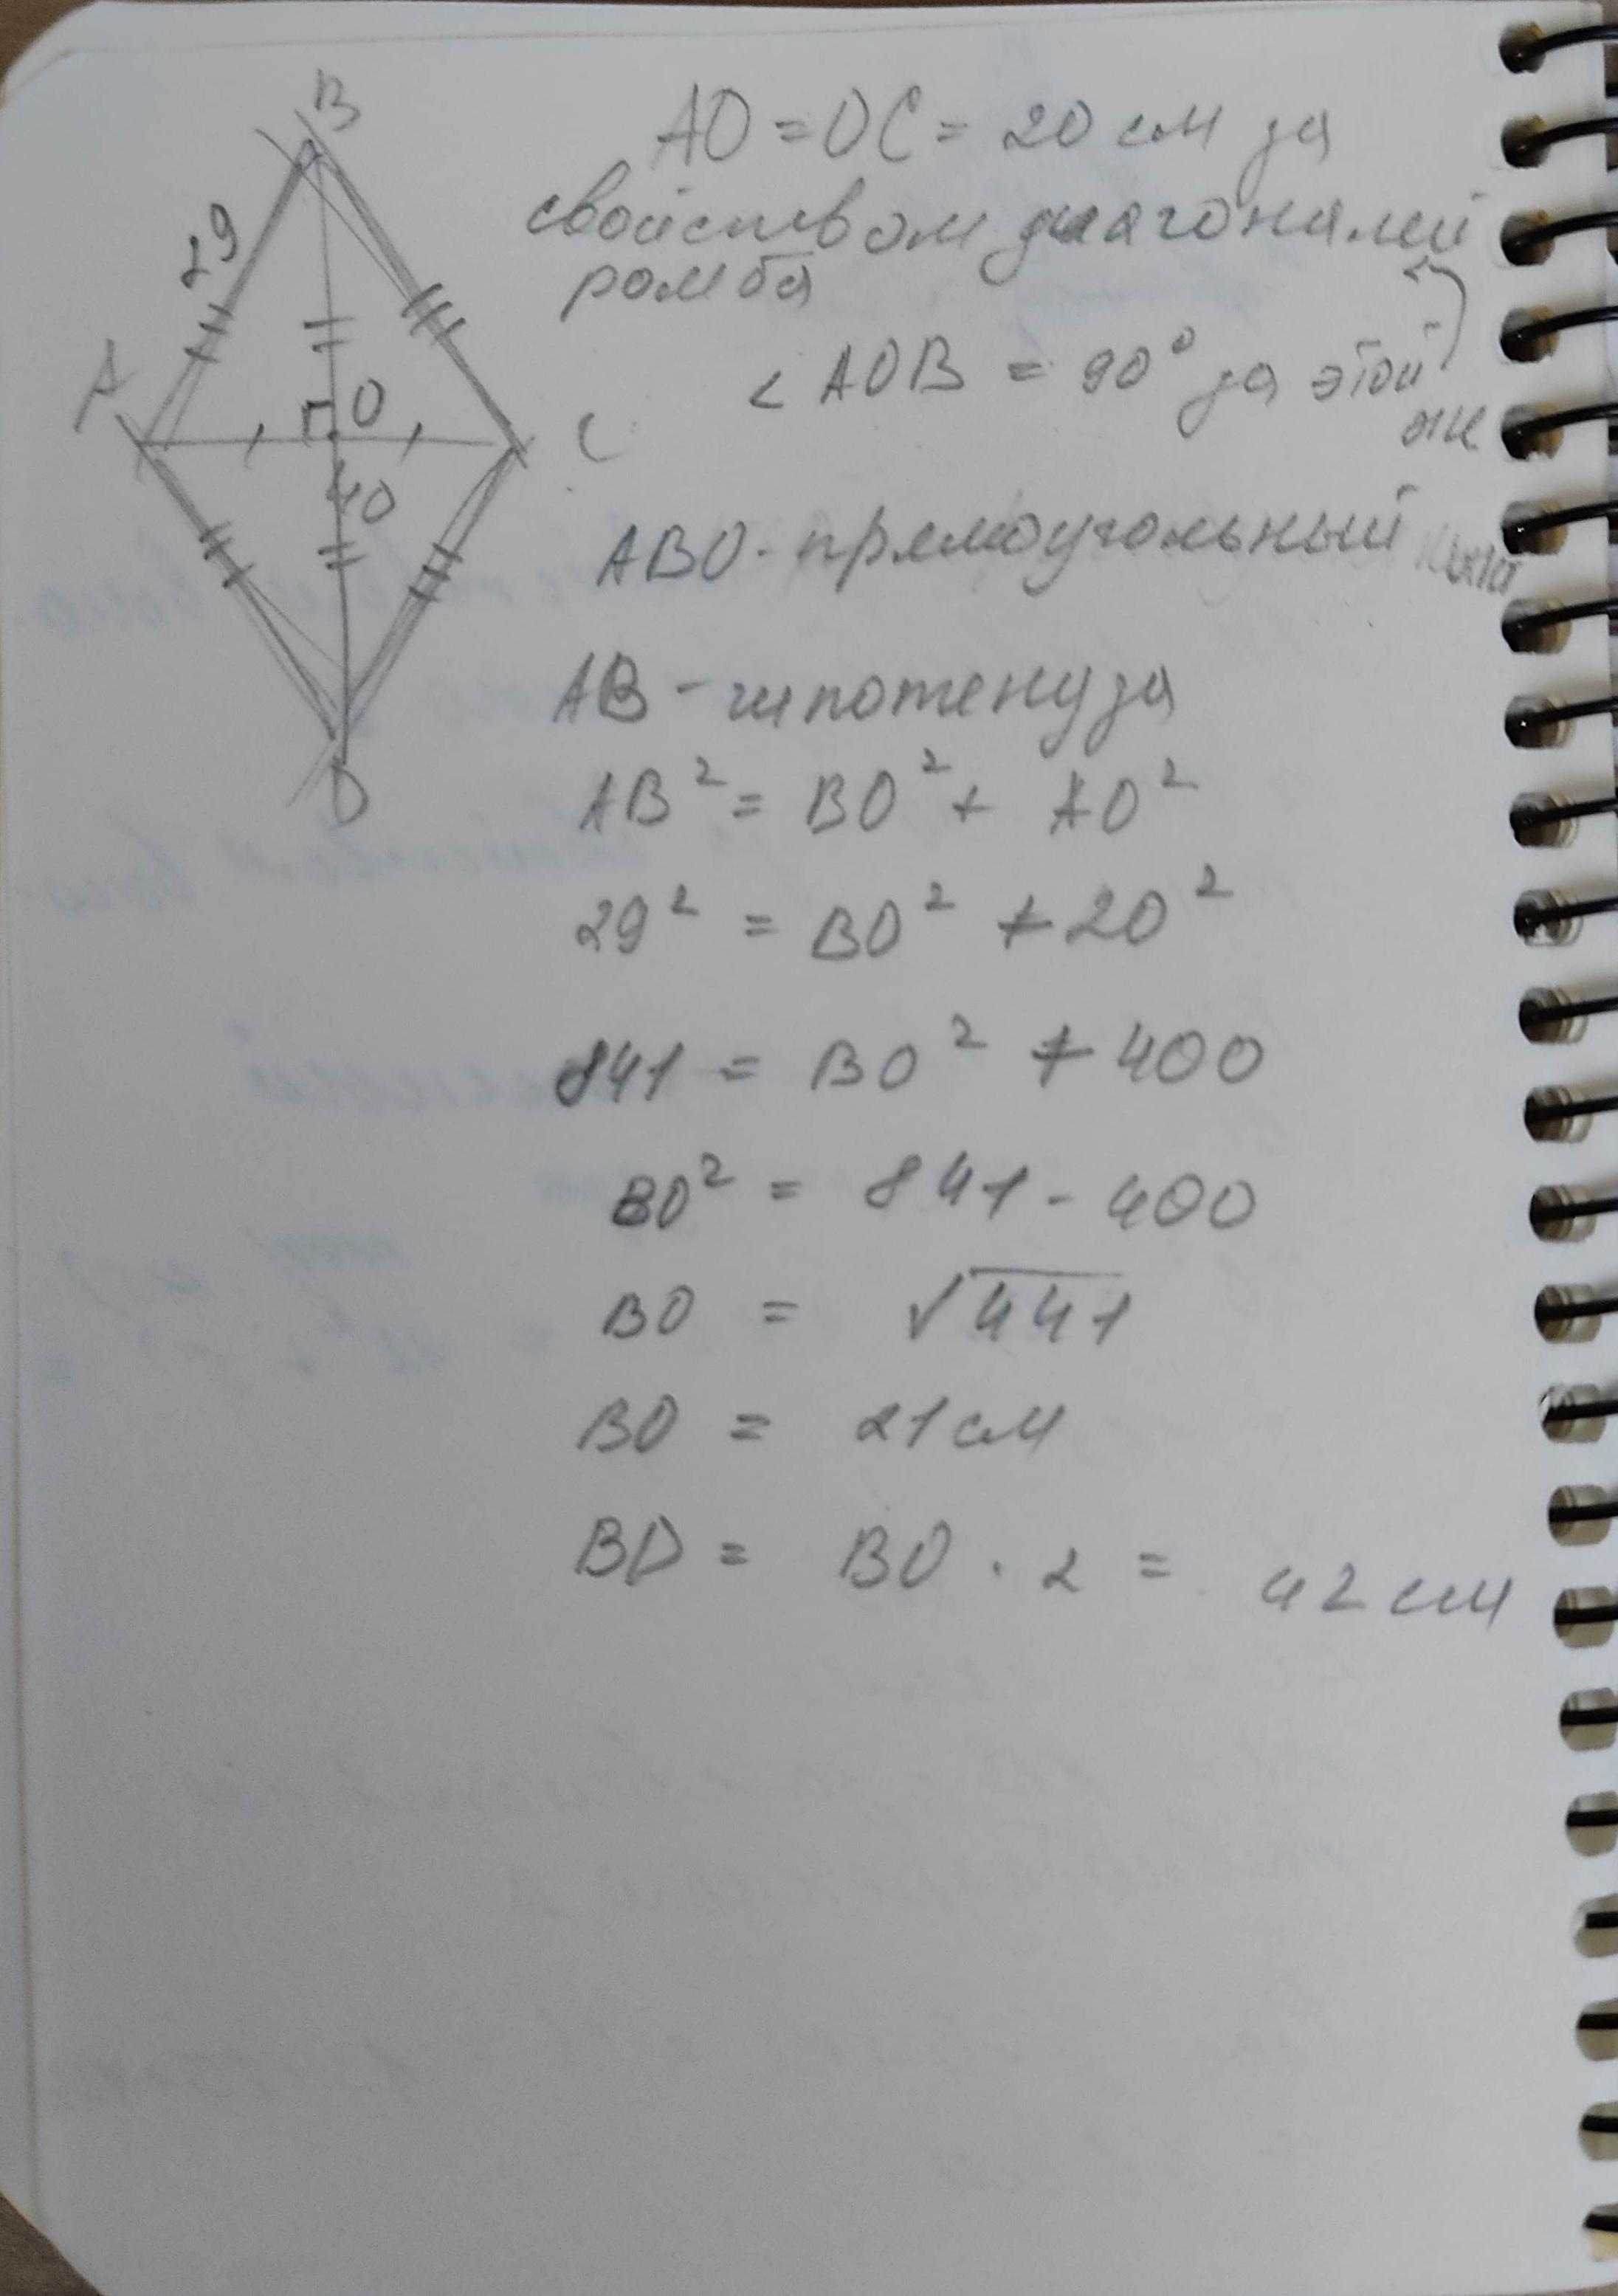 B
29
A
O
C
40
D
AO = OC = 20 см за
свойством диагоналей
ромба
< AOB = 90° за этой
же
ABO - прямоугольный
AB - гипотенуза
AB² = BO² + AO²
29² = BO² + 20²
841 = BO² + 400
BO² = 841 - 400
BO = √441
BO = 21 см
BD = BO · 2 = 42 см